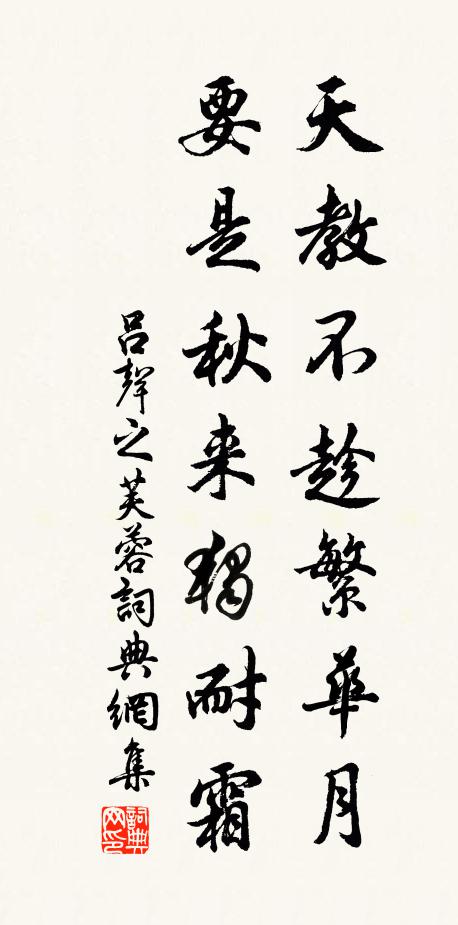 天教不趁繁華月
要是秋来獨耐霜
呂聲之芙蓉詞典網集
詞典網印